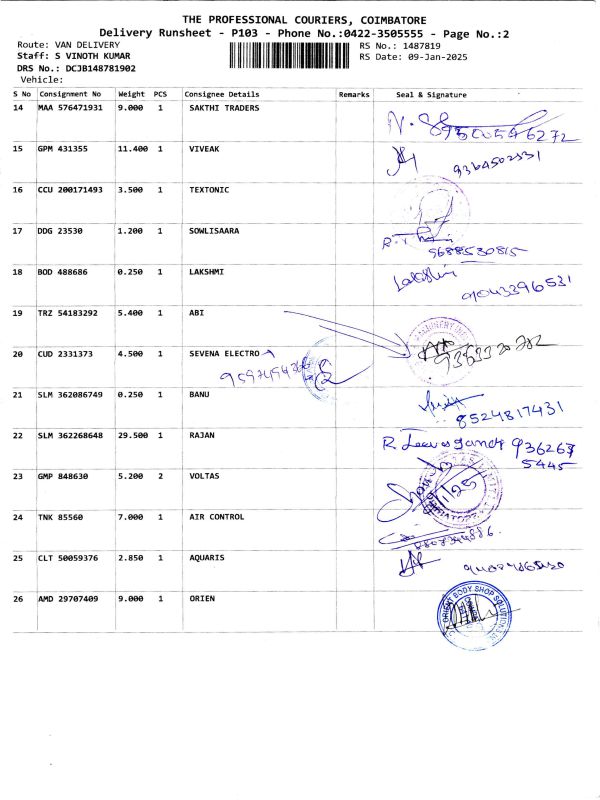 THE PROFESSIONAL COURIERS, COIMBATORE
Delivery Runsheet - P103 - Phone No.:0422-3505555 - Page No.:2
Route: VAN DELIVERY RS No.: 1487819
Staff: S VINOTH KUMAR RS Date: 09-Jan-2025
DRS No.: DCJB148781902
Vehicle:
S No Consignment No Weight PCS Consignee Details Remarks Seal & Signature
14 MAA 576471931 9.000 1 SAKTHI TRADERS
15 GPM 431355 11.400 1 VIVEAK
9364502331
16 CCU 200171493 3.500 1 TEXTONIC
17 DDG 23530 1.200 1 SOWLISAARA
9688530815
18 BOD 488686 0.250 1 LAKSHMI
Lakshmi
9043396531
19 TRZ 54183292 5.400 1 ABI
20 CUD 2331373 4.500 1 SEVENA ELECTRO
21 SLM 362086749 0.250 1 BANU
8524817431
22 SLM 362268648 29.500 1 RAJAN
936263
5445
23 GMP 848630 5.200 2 VOLTAS
24 TNK 85560 7.000 1 AIR CONTROL
25 CLT 50059376 2.850 1 AQUARIS
26 AMD 29707409 9.000 1 ORIEN
ORIENT BODY SHOP SOLUTIONS